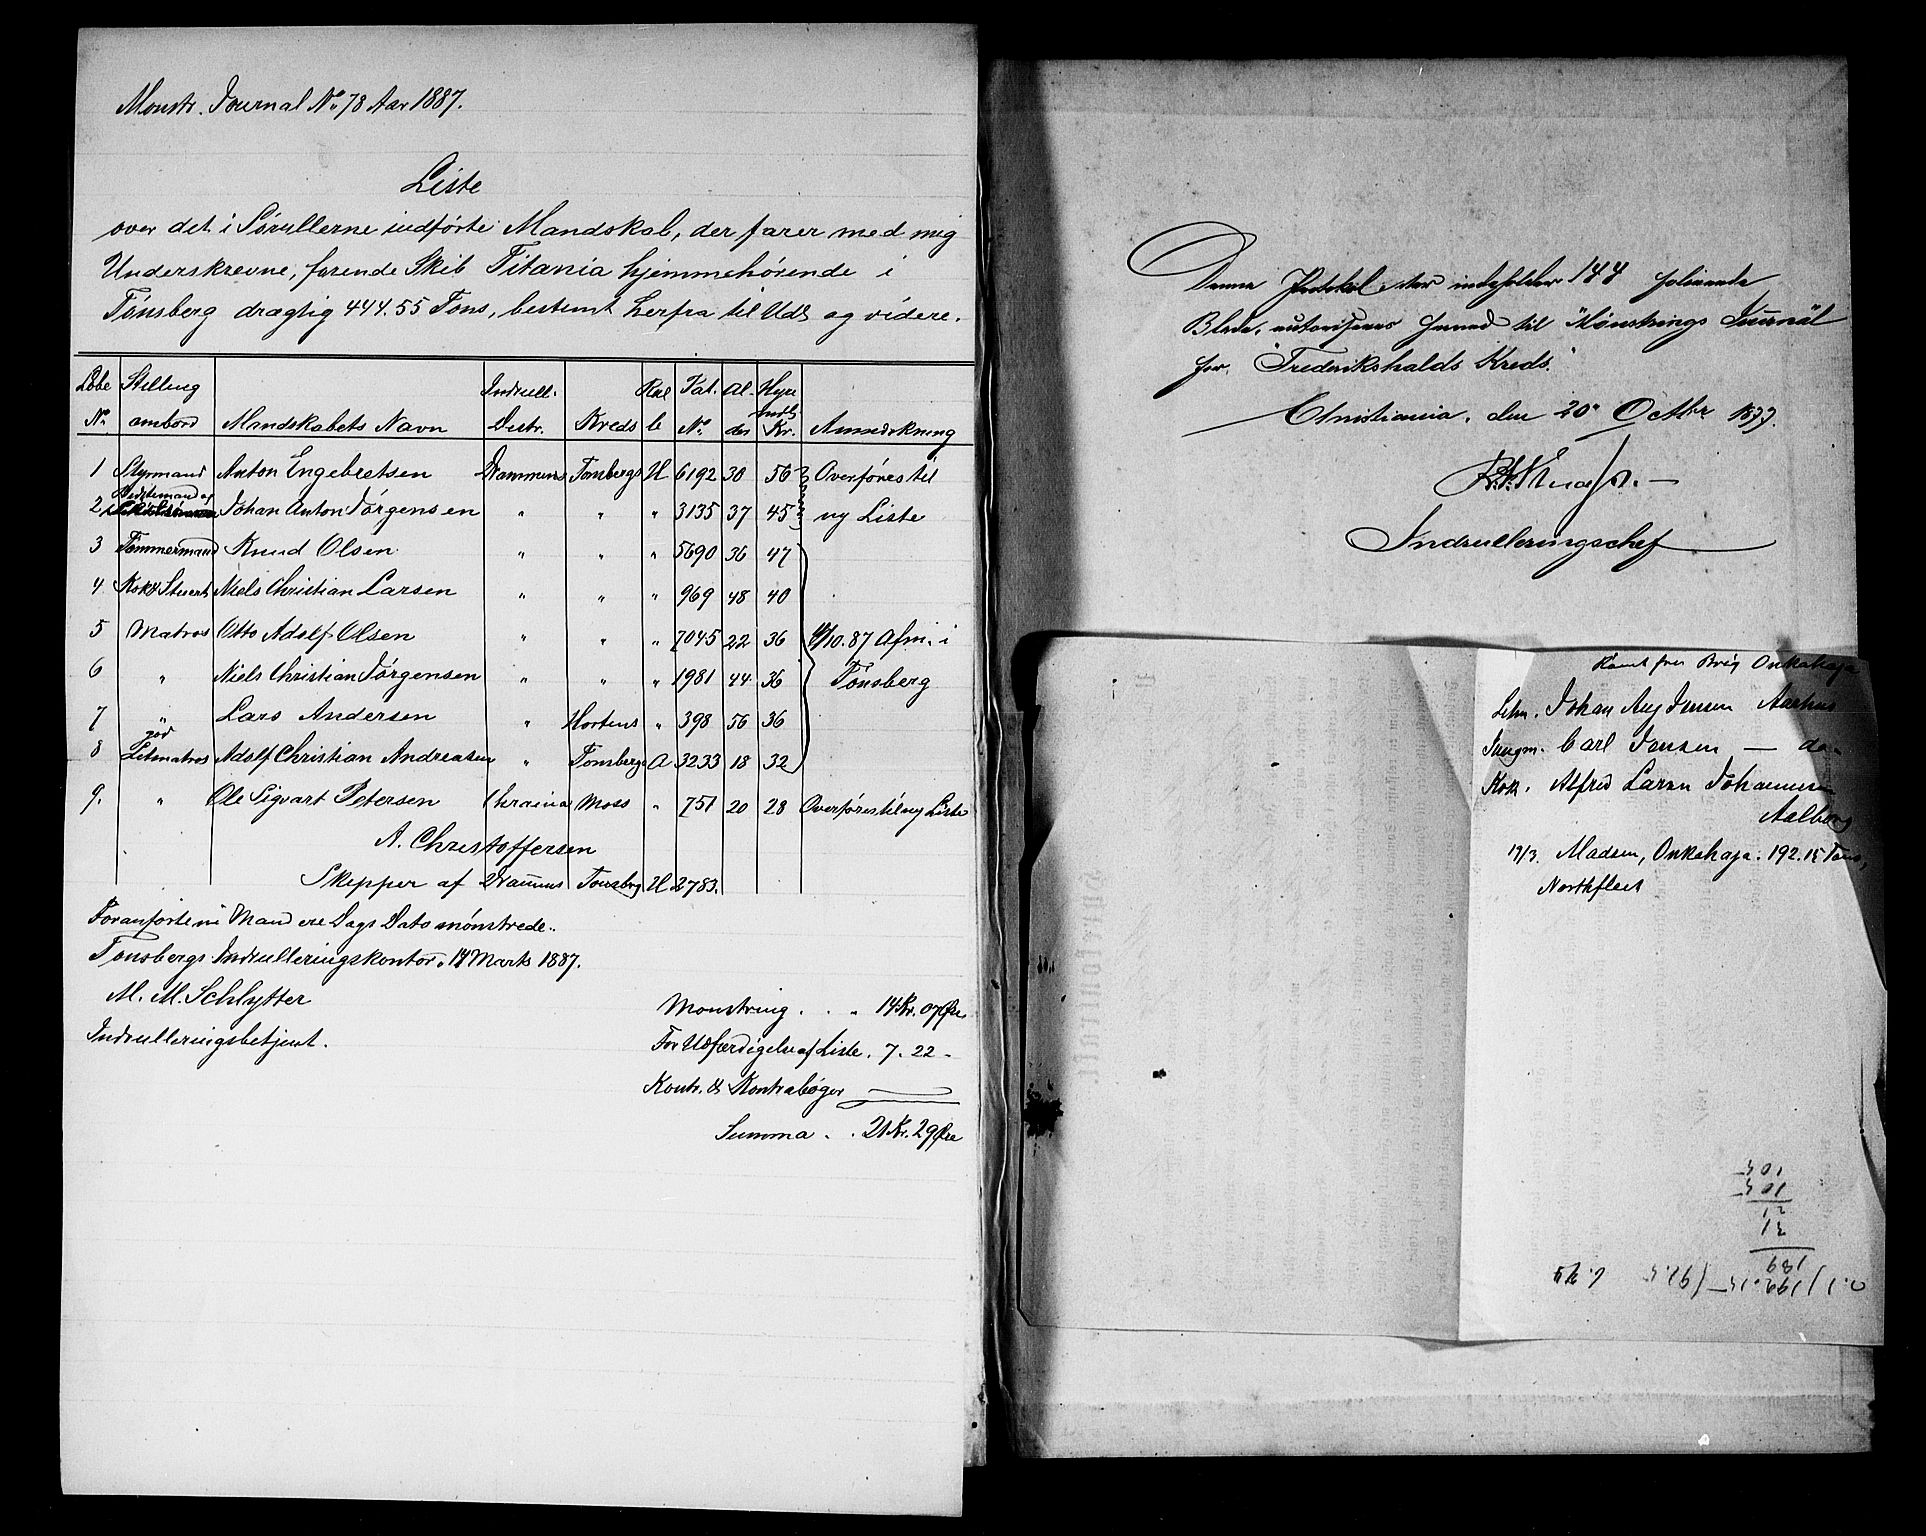 Mønstr. Journal No 78 Aar 1887.
Liste
over det i Sørullerne indførte Mandskab, der farer med mig
Underskrevne, førende Skib Titania hjemmehørende i
Tønsberg drægtig 444.55 Tons, bestemt herfra til Udl og videre.
Løbe No. Stilling ombord Mandskabets Navn Indrull. Distr. Kreds Rul le Pat. No. Al- der Hyre mdl. Kr. Anmærkning
1 Styrmand Anton Engebretsen Drammens Tønsbergs H 6192 30 56 Overføres til
2 Bestemand og Johan Anton Jørgensen " " " 3135 37 45 ny Liste
3 Tømmermand Knud Olsen " " " 5690 36 47
4 Kok & Stuert Niels Christian Larsen " " " 969 48 40
5 Matros Otto Adolf Olsen " " " 7045 22 36 /10.87 Afm. i
6 " Niels Christian Jørgensen " " " 1981 44 36 Tønsberg
7 " Lars Andersen " Hortens " 398 56 36
8 god Letmatros Adolf Christian Andreasen " Tønsbergs A 3233 18 32
9. " Ole Sigvart Petersen Chrania Moss " 751 20 28 Overføres til ny Liste
A. Christoffersen
Skipper af Drammens Tønsberg H 2783.
Foranførte ni Mand ere Dags Dato mønstrede.
Tønsbergs Indrulleringskontor, 14 Marts 1887.
M. M. Schlytter
Indrulleringsbetjent.
Mønstring . . " 14 Kr. 07 Øre
For Udfærdigelse af Liste. 7. 22 -
Kontr. & Kontrabøger
Summa . . 21 Kr. 29 Øre
Denne Protokol der indeholder 144 folierede
Blade, autoriseres herved til "Mønstrings Journal
for Frederikshalds Kreds".
Christiania, den 20de Octbr 1877.
Indrulleringschef
Rømt fra Brig Onkahaja
Letm. Johan Aug Jensen Aarhus
Jungm. Carl Jensen — do.
Kok. Alfred Larsn Johannesen
Aalborg
17/3. Madsen, Onkahaja. 192.15 Tons,
Northfleet